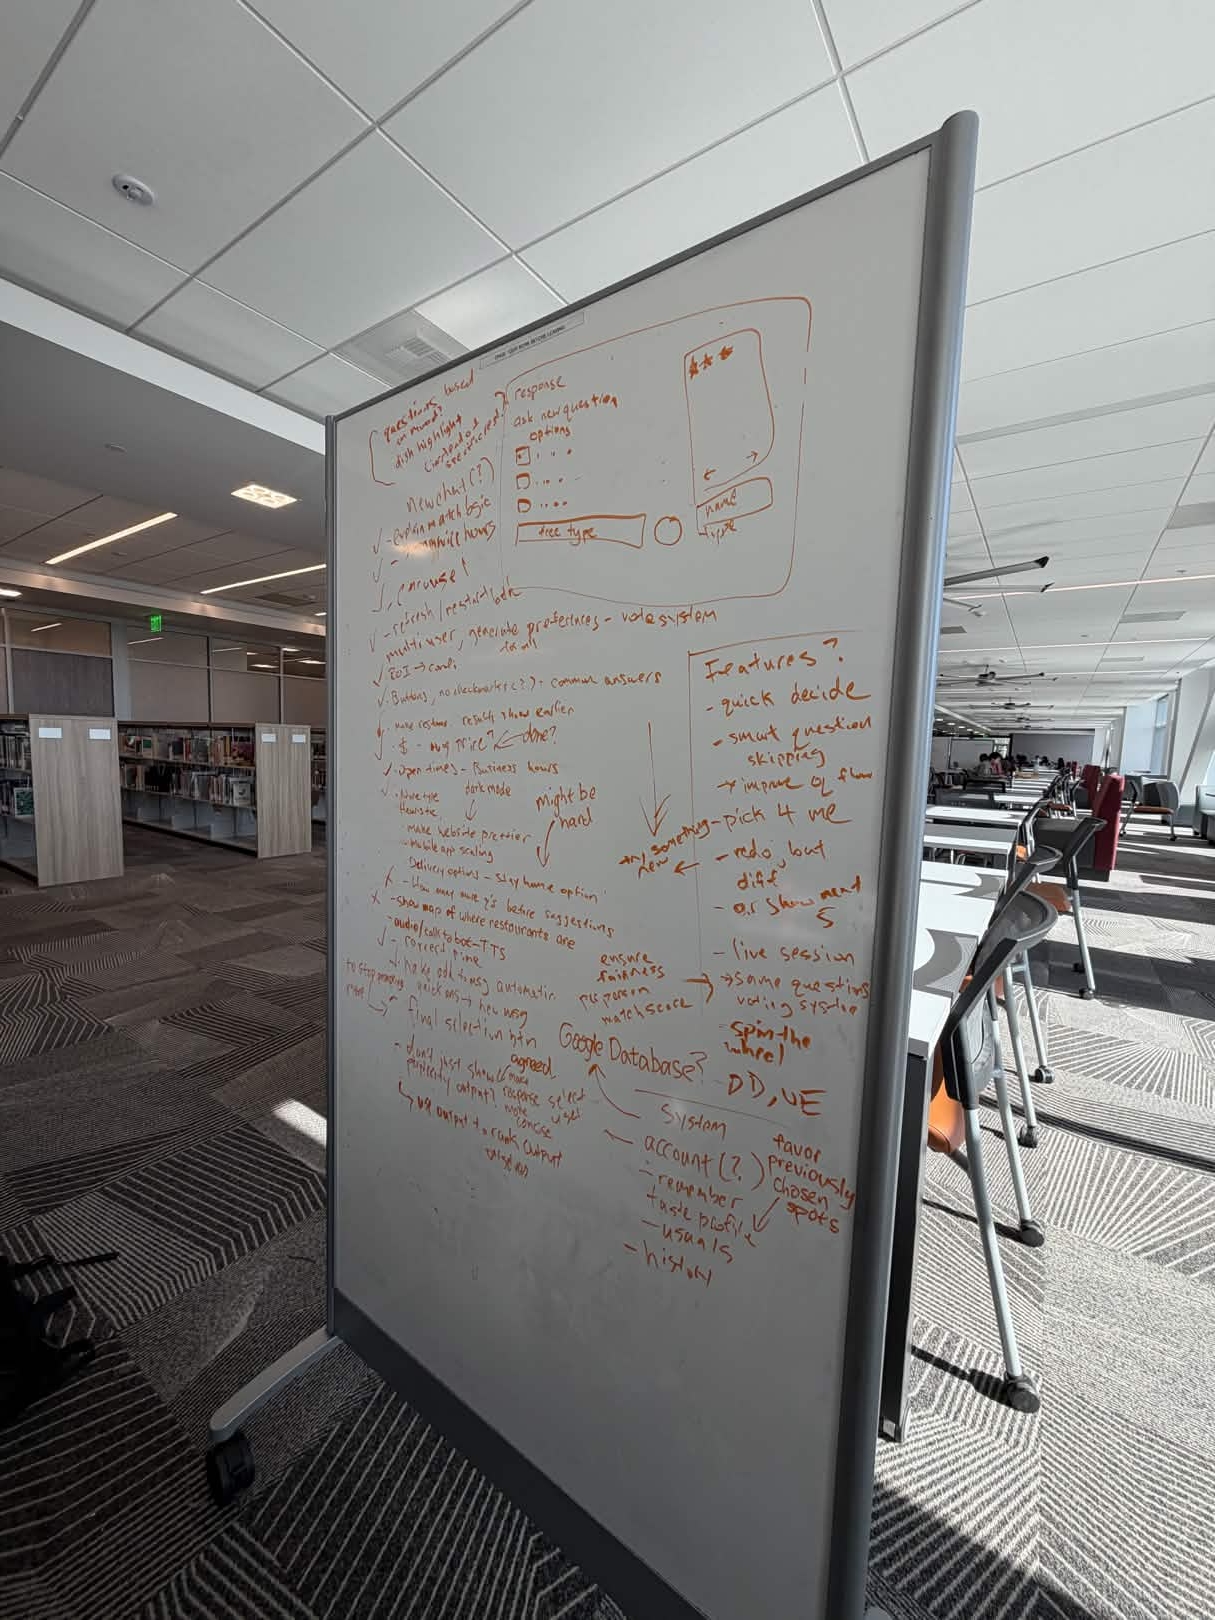 questions based
on mood?
dish highlight
response
ask new question
options
free type
name
new chat(?)
- explain match logic
hours
- carousel
- refresh/restart btn
multi user, generate preferences - vote system
to all
Buttons, no checkmarks(?) - common answers
results show earlier
- $ - avg price? ← done?
- open times - Business hours
dark mode
- make website prettier
- Mobile app scaling
might be
hard
Delivery options - stay home option
- How many more q's before suggestions
- show map of where restaurants are
audio/talk to bot - TTS
- correct time
final selection btn
- don't just show
perplexity output?
agreed
response
more
concise
select
↳ use output to rank output
Features?
- quick decide
- smart question
skipping
→ improve q flow
- pick 4 me
try something
new ←
- redo, but
diff
- or show next
5
- live session
→ same questions
voting system
ensure
fairness
per person
match score
spin the
wheel
Google Database?
DD, UE
System
account(?)
- remember
taste profile
- usuals
- history
favor
previously
chosen
spots